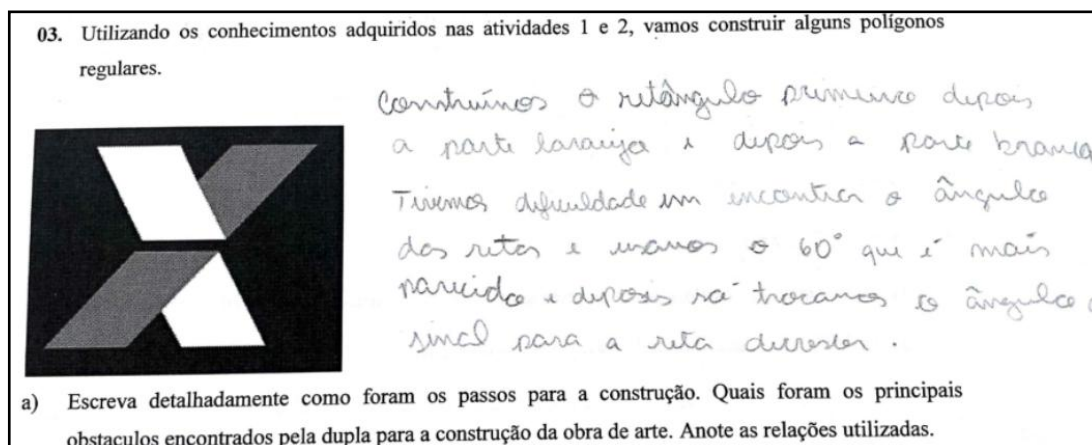 03. Utilizando os conhecimentos adquiridos nas atividades 1 e 2, vamos construir alguns polígonos
regulares.
Construímos o retângulo primeiro depois
a parte laranja e depois a parte branca
Tivemos dificuldade em encontrar o ângulo
das retas e usamos o 60° que é mais
parecido e depois só trocamos o ângulo
sinal para a reta decrescer.
a) Escreva detalhadamente como foram os passos para a construção. Quais foram os principais
obstaculos encontrados pela dupla para a construção da obra de arte. Anote as relações utilizadas.